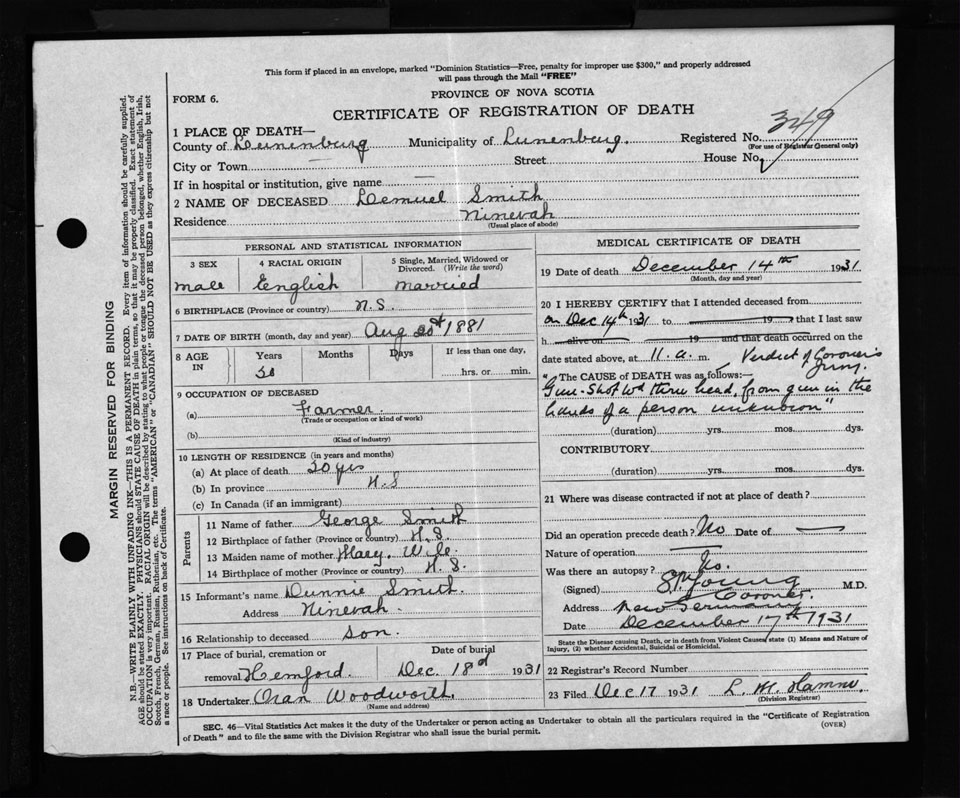 This form if placed in an envelope, marked "Dominion Statistics—Free, penalty for improper use $300," and properly addressed
will pass through the Mail "FREE"
PROVINCE OF NOVA SCOTIA
FORM 6.
CERTIFICATE OF REGISTRATION OF DEATH
349
1 PLACE OF DEATH—
County of Lunenburg Municipality of Lunenburg. Registered No.
(For use of Registrar General only)
City or Town — Street House No.
If in hospital or institution, give name —
2 NAME OF DECEASED Lemuel Smith
Residence Ninevah
(Usual place of abode)
PERSONAL AND STATISTICAL INFORMATION
3 SEX 4 RACIAL ORIGIN 5 Single, Married, Widowed or Divorced. (Write the word)
male English married
6 BIRTHPLACE (Province or country) N.S.
7 DATE OF BIRTH (month, day and year) Aug 20th 1881
8 AGE IN Years Months Days If less than one day,
50 hrs. or min.
9 OCCUPATION OF DECEASED
(a) Farmer.
(Trade or occupation or kind of work)
(b)
(Kind of industry)
10 LENGTH OF RESIDENCE (in years and months)
(a) At place of death 50 yrs
(b) In province N.S
(c) In Canada (if an immigrant)
Parents
11 Name of father George Smith
12 Birthplace of father (Province or country) N.S.
13 Maiden name of mother Mary. Wile.
14 Birthplace of mother (Province or country) N.S.
15 Informant's name Smith.
Address Ninevah.
16 Relationship to deceased son.
17 Place of burial, cremation or removal Hemford. Date of burial Dec. 18d 1931
18 Undertaker Oran Woodworth.
(Name and address)
MEDICAL CERTIFICATE OF DEATH
19 Date of death December 14th 1931
(Month, day and year)
20 I HEREBY CERTIFY that I attended deceased from
on Dec 14th 1931 to 19 that I last saw
h alive on 19 and that death occurred on the
date stated above, at 11. a. m. Verdict of Coroner's Jury.
The CAUSE OF DEATH was as follows:—
"Gun-Shot Wd thru head, from gun in the
hands of a person unknown"
(duration) yrs. mos. dys.
CONTRIBUTORY
(duration) yrs. mos. dys.
21 Where was disease contracted if not at place of death?
Did an operation precede death? No Date of —
Nature of operation —
Was there an autopsy? No.
(Signed) Young M.D.
Coroner.
Address New Germany
Date December 17th 1931
State the Disease causing Death, or in death from Violent Causes state (1) Means and Nature of
Injury, (2) whether Accidental, Suicidal or Homicidal.
22 Registrar's Record Number
23 Filed Dec 17 1931 L. M.
(Division Registrar)
SEC. 46—Vital Statistics Act makes it the duty of the Undertaker or person acting as Undertaker to obtain all the particulars required in the "Certificate of Registration
of Death" and to file the same with the Division Registrar who shall issue the burial permit.
(OVER)
MARGIN RESERVED FOR BINDING
N.B.—WRITE PLAINLY WITH UNFADING INK—THIS IS A PERMANENT RECORD. Every item of information should be carefully supplied.
AGE should be stated EXACTLY. PHYSICIANS should STATE CAUSE OF DEATH in plain terms, so that it may be properly classified. Exact Statement of
OCCUPATION is very important. RACIAL ORIGIN will be described by stating to what people or tongue the deceased person belonged, whether English, Irish,
Scotch, French, German, Russian, Ruthenian, etc. The terms "AMERICAN" or "CANADIAN" SHOULD NOT BE USED as they express citizenship but not
a race or people. See instructions on back of Certificate.